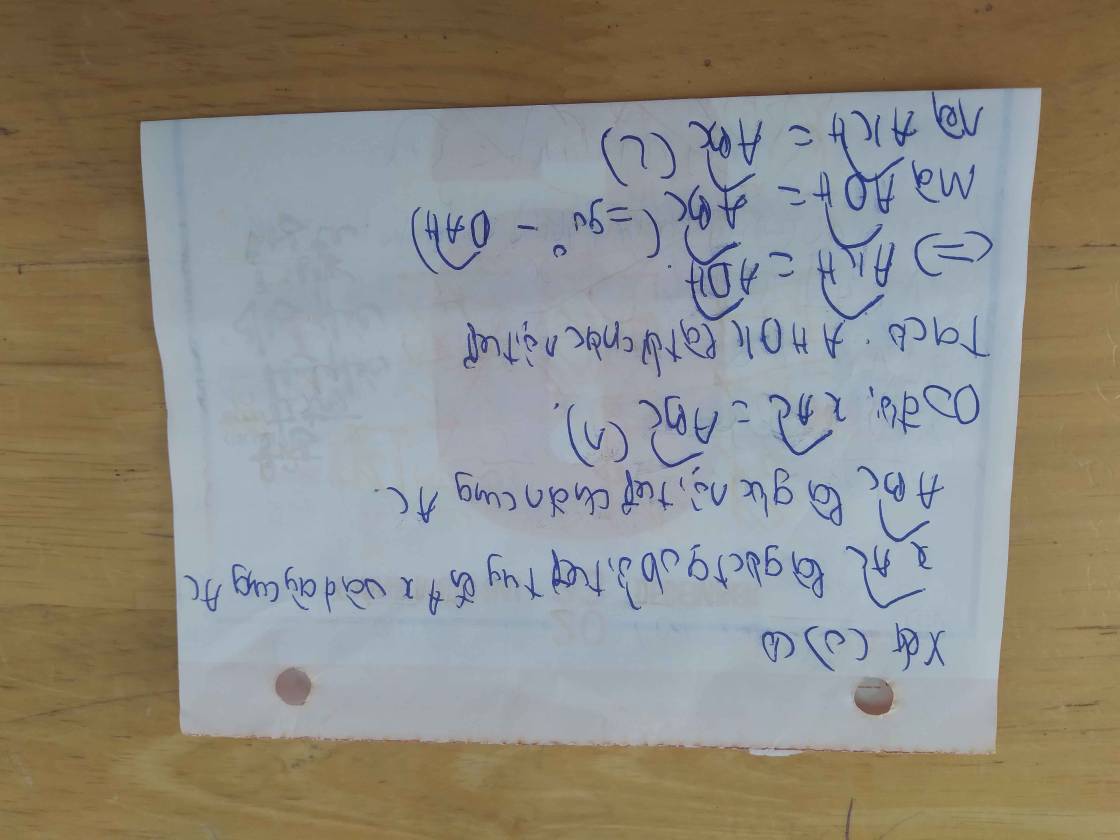 Xét (O) có
xAC là góc tạo bởi tiếp tuyến Ax và dây cung AC
ABC là góc nội tiếp chắn cung AC.
Do đó, xAC = ABC (1).
Ta có. AHDK là tứ giác nội tiếp
(=) AKH = ADH
Mà ADH = ABC (=90° - DAH)
Nên AKH = ABC (2)